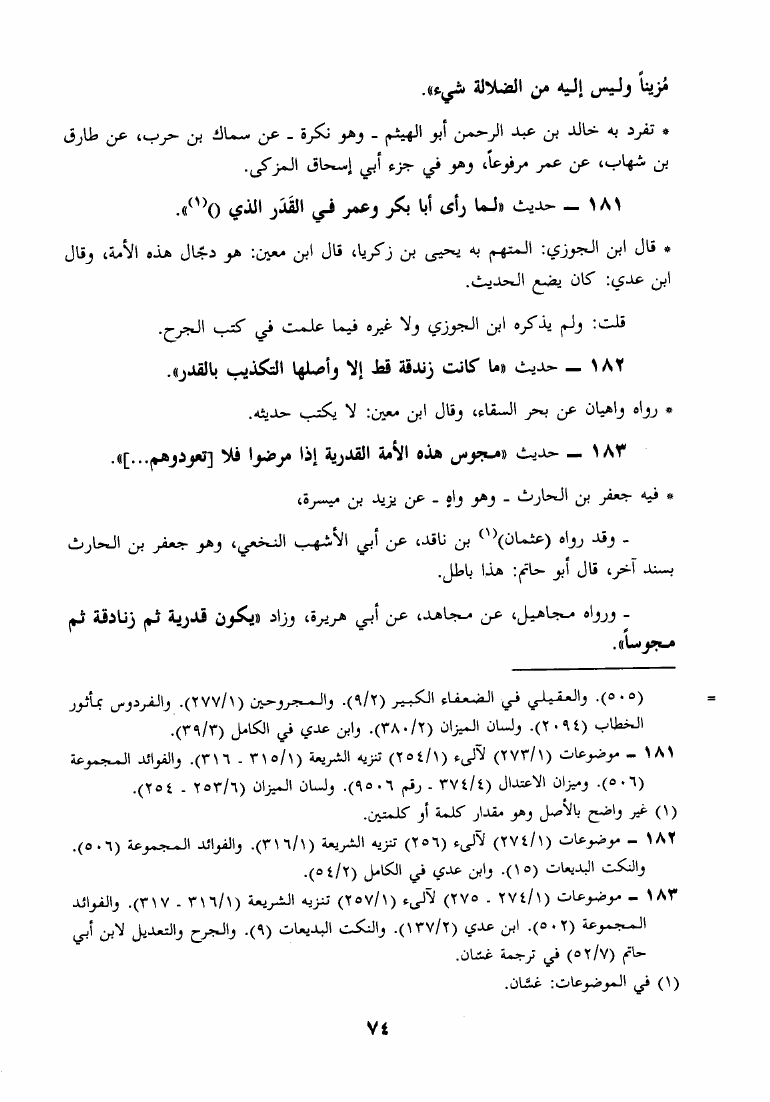 مُزيناً وليس إليه من الضلالة شيء».
* تفرد به خالد بن عبد الرحمن أبو الهيثم ـ وهو نكرة ـ عن سماك بن حرب، عن طارق
بن شهاب، عن عمر مرفوعاً، وهو في جزء أبي إسحاق المزكى.
١٨١ ـ حديث «لما رأى أبا بكر وعمر في القَدَر الذي ()(١)».
* قال ابن الجوزي: المتهم به يحيى بن زكريا، قال ابن معين: هو دجّال هذه الأمة، وقال
ابن عدي: كان يضع الحديث.
قلت: ولم يذكره ابن الجوزي ولا غيره فيما علمت في كتب الجرح.
١٨٢ ـ حديث «ما كانت زندقة قط إلا وأصلها التكذيب بالقدر».
* رواه واهيان عن بحر السقاء، وقال ابن معين: لا يكتب حديثه.
١٨٣ ـ حديث «مجوس هذه الأمة القدرية إذا مرضوا فلا [تعودوهم...]».
* فيه جعفر بن الحارث ـ وهو واهٍ ـ عن يزيد بن ميسرة،
- وقد رواه (عثمان)(١) بن ناقد، عن أبي الأشهب النخعي، وهو جعفر بن الحارث
بسند آخر، قال أبو حاتم: هذا باطل.
- ورواه مجاهيل، عن مجاهد، عن أبي هريرة، وزاد «يكون قدرية ثم زنادقة ثم
مجوساً».
= (٥٠٥). والعقيلي في الضعفاء الكبير (٩/٢). والمجروحين (٢٧٧/١). والفردوس بمأثور
الخطاب (٢٠٩٤). ولسان الميزان (٣٨٠/٢). وابن عدي في الكامل (٣٩/٣).
١٨١ ـ موضوعات (٢٧٣/١) لآلىء (٢٥٤/١) تنزيه الشريعة (٣١٥/١ ـ ٣١٦). والفوائد المجموعة
(٥٠٦). وميزان الاعتدال (٣٧٤/٤ ـ رقم ٩٥٠٦). ولسان الميزان (٢٥٣/٦ ـ ٢٥٤).
(١) غير واضح بالأصل وهو مقدار كلمة أو كلمتين.
١٨٢ ـ موضوعات (٢٧٤/١) لآلىء (٢٥٦) تنزيه الشريعة (٣١٦/١). والفوائد المجموعة (٥٠٦).
والنكت البديعات (١٥). وابن عدي في الكامل (٥٤/٢).
١٨٣ ـ موضوعات (٢٧٤/١ ـ ٢٧٥) لآلىء (٢٥٧/١) تنزيه الشريعة (٣١٦/١ ـ ٣١٧). والفوائد
المجموعة (٥٠٢). ابن عدي (١٣٧/٢). والنكت البديعات (٩). والجرح والتعديل لابن أبي
حاتم (٥٢/٧) في ترجمة غسّان.
(١) في الموضوعات: غسَّان.
٧٤